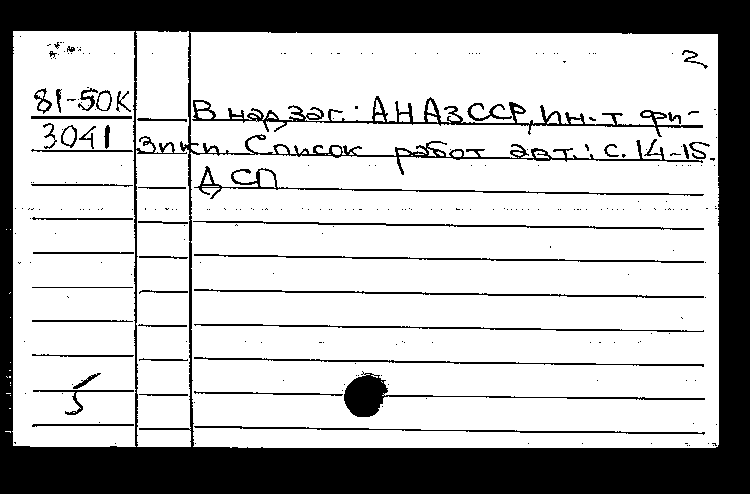 2
81-50К
В надзаг.: АН АзССР, Ин-т фи-
3041
зики. Список работ авт.: с. 14-15.
ДСП
5